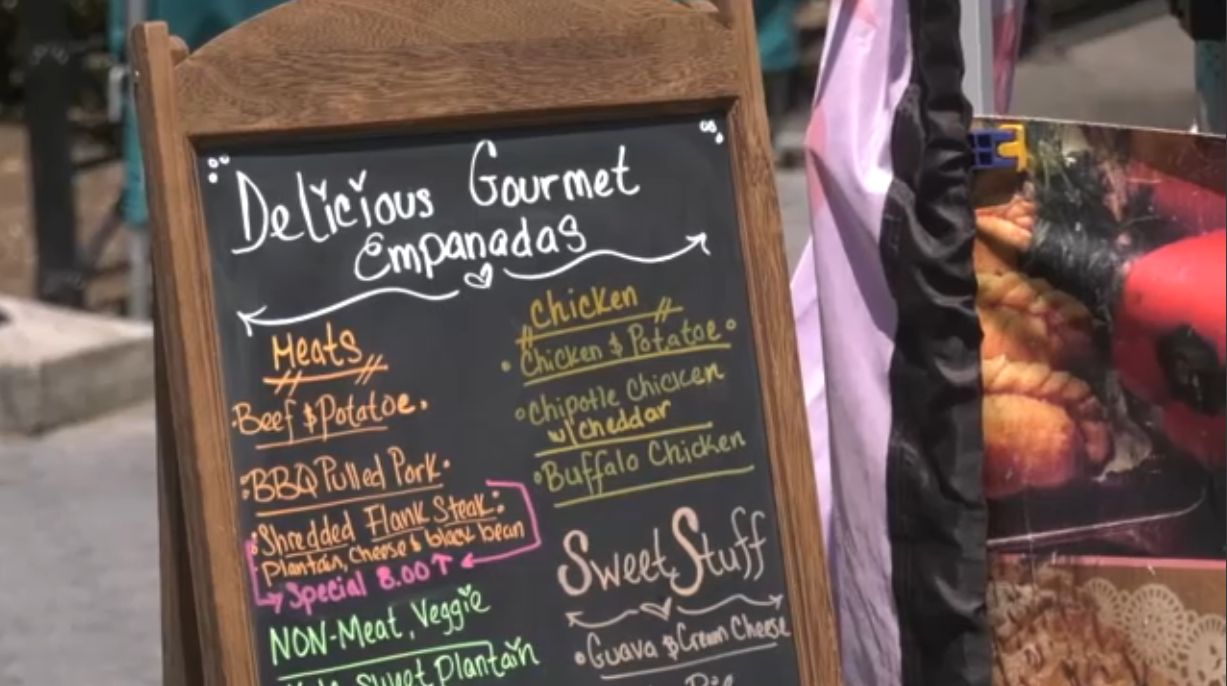 Delicious Gourmet
Empanadas
Meats
Beef & Potatoe.
BBQ Pulled Pork.
Shredded Flank Steak:
Plantain, cheese & black bean
Special 8.00 ↑
NON-Meat, Veggie
Sweet Plantain
Chicken
Chicken & Potatoe
Chipotle Chicken
w/cheddar
Buffalo Chicken
Sweet Stuff
Guava & Cream Cheese
Pie